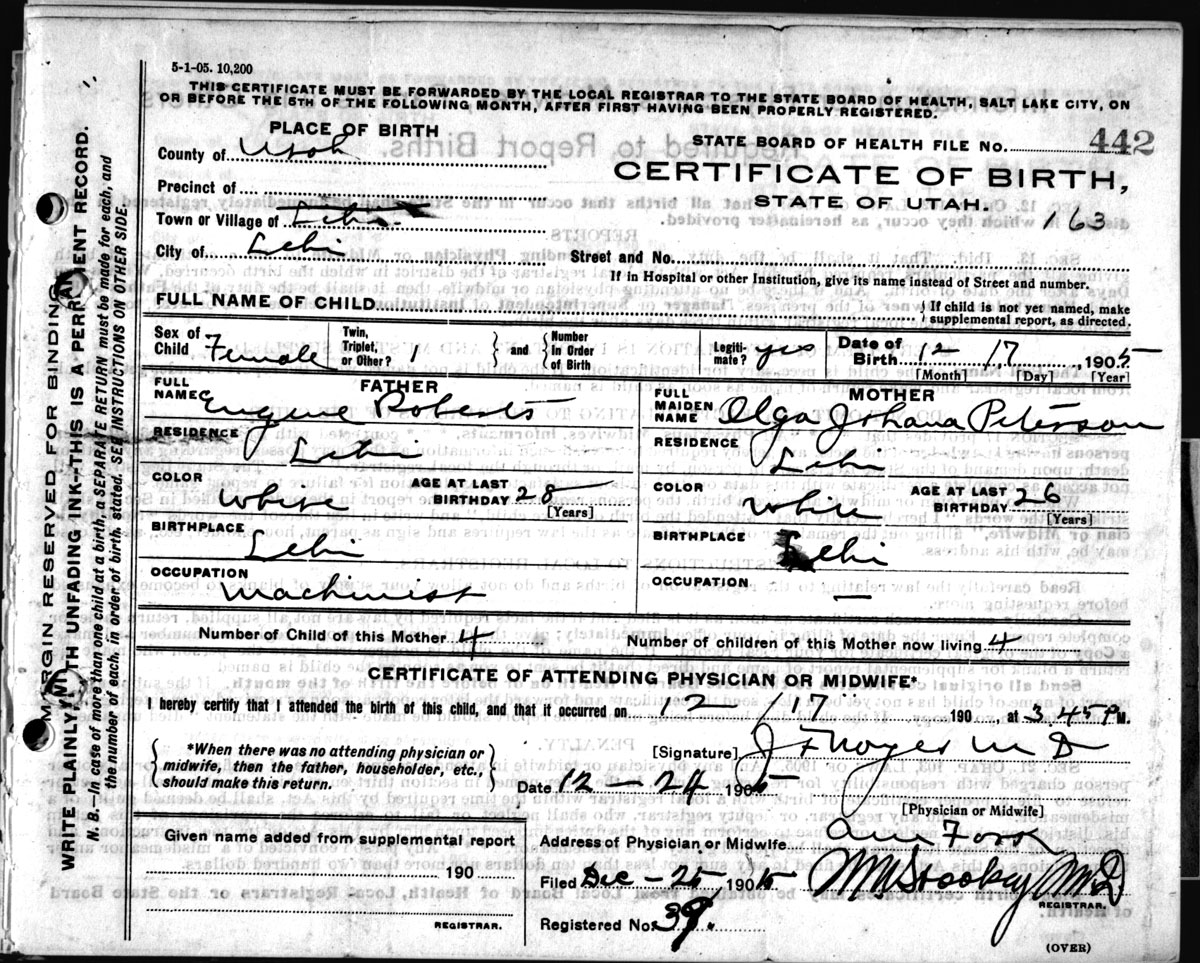 5-1-05. 10,200
THIS CERTIFICATE MUST BE FORWARDED BY THE LOCAL REGISTRAR TO THE STATE BOARD OF HEALTH, SALT LAKE CITY, ON
OR BEFORE THE 5TH OF THE FOLLOWING MONTH, AFTER FIRST HAVING BEEN PROPERLY REGISTERED.
PLACE OF BIRTH
STATE BOARD OF HEALTH FILE No. 442
County of Utah
CERTIFICATE OF BIRTH,
Precinct of
STATE OF UTAH.
Town or Village of Lehi
163
City of Lehi
Street and No.
If in Hospital or other Institution, give its name instead of Street and number.
FULL NAME OF CHILD
If child is not yet named, make
supplemental report, as directed.
Sex of
Child Female
Twin,
Triplet,
or Other? 1
and
Number
In Order
of Birth
Legiti-
mate? yes
Date of
Birth 12 17 1905
[Month] [Day] [Year]
FATHER
FULL
NAME Eugene Roberts
RESIDENCE
Lehi
COLOR
White
AGE AT LAST
BIRTHDAY 28
[Years]
BIRTHPLACE
Lehi
OCCUPATION
Machinist
MOTHER
FULL
MAIDEN
NAME Olga Johana Peterson
RESIDENCE
Lehi
COLOR
White
AGE AT LAST
BIRTHDAY 26
[Years]
BIRTHPLACE
Lehi
OCCUPATION
—
Number of Child of this Mother 4
Number of children of this Mother now living 4
CERTIFICATE OF ATTENDING PHYSICIAN OR MIDWIFE*
I hereby certify that I attended the birth of this child, and that it occurred on 12/17 190 at 3 45 P M.
*When there was no attending physician or
midwife, then the father, householder, etc.,
should make this return.
[Signature] J F Noyes M D
Date 12-24 1905
[Physician or Midwife]
Given name added from supplemental report
190
REGISTRAR.
Address of Physician or Midwife Am Fork
Filed Dec-25 1905
W M Stookey M.D
REGISTRAR.
Registered No. 39.
(OVER)
MARGIN RESERVED FOR BINDING
WRITE PLAINLY WITH UNFADING INK—THIS IS A PERMANENT RECORD.
N. B.—In case of more than one child at a birth, a SEPARATE RETURN must be made for each, and
the number of each, in order of birth, stated. SEE INSTRUCTIONS ON OTHER SIDE.